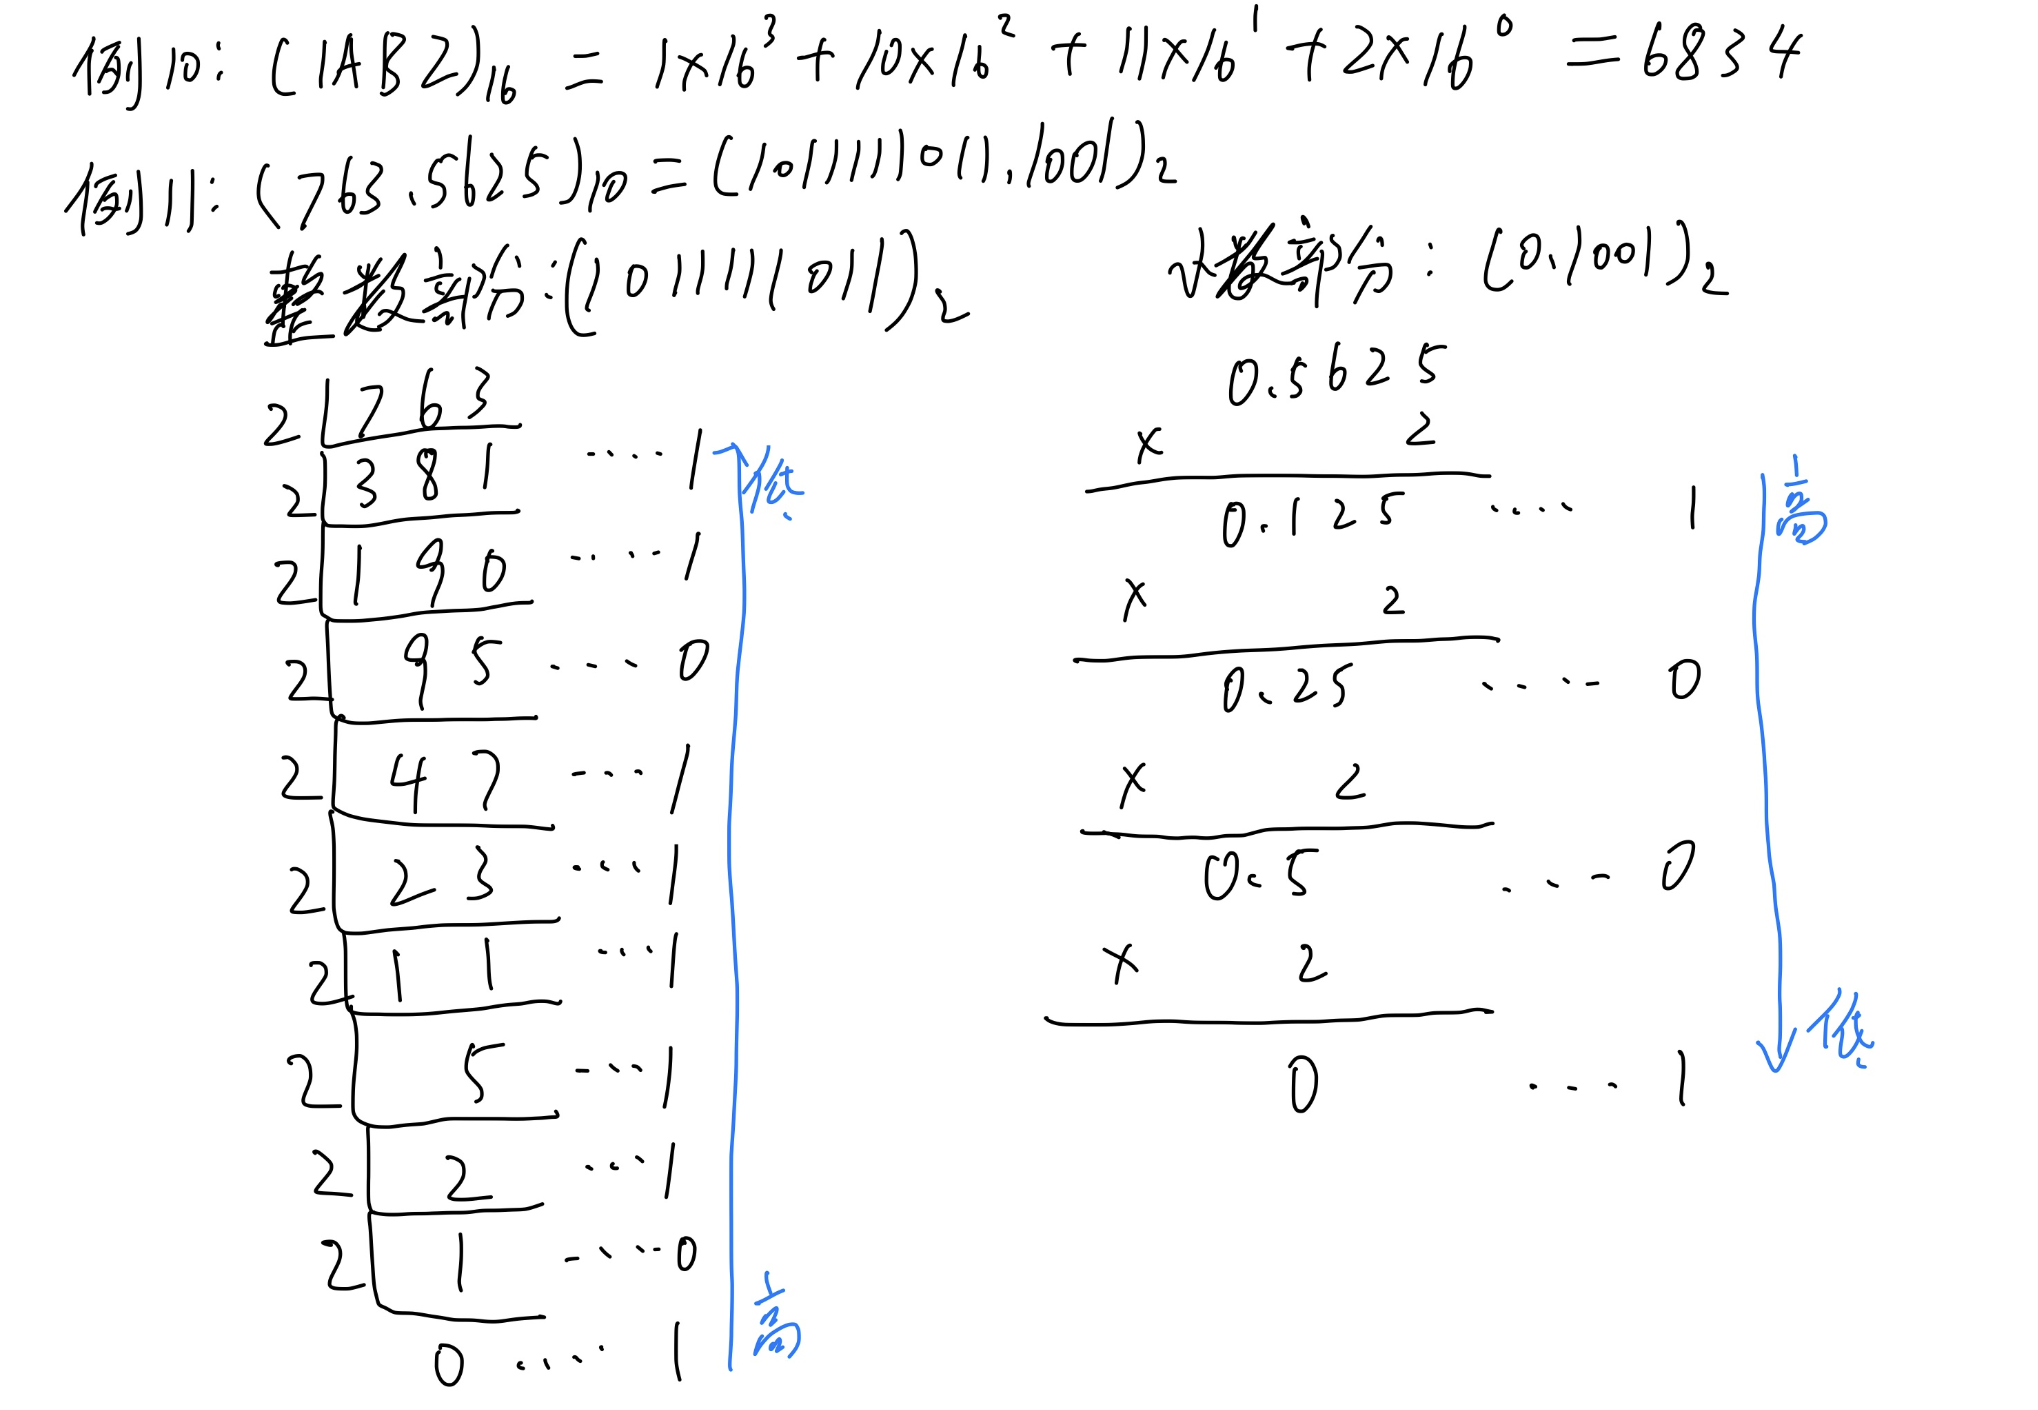 例10: (1AB2)₁₆ = 1×16³ + 10×16² + 11×16¹ + 2×16⁰ = 6834
例11: (763.5625)₁₀ = (1011111011.1001)₂
整数部分:(1011111011)₂
2 763
2 381 ···· 1 低
2 190 ···· 1
2 95 ···· 0
2 47 ··· 1
2 23 ··· 1
2 11 ··· 1
2 5 ··· 1
2 2 ··· 1
2 1 ···· 0
0 ···· 1 高
小数部分: (0.1001)₂
0.5625
× 2
0.125 ···· 1 高
× 2
0.25 ···· 0
× 2
0.5 ··· 0
× 2
0 ··· 1 低